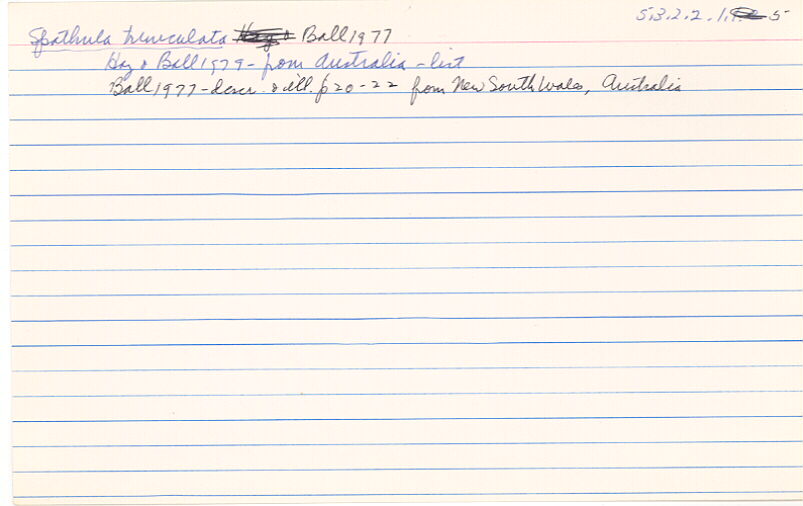 53.2.2.1.9. 5
Spathula truculata Hay & Ball 1977
Hay & Ball 1979 - from Australia - list
Ball 1977 - descr. & ill. p 20-22 from New South Wales, Australia